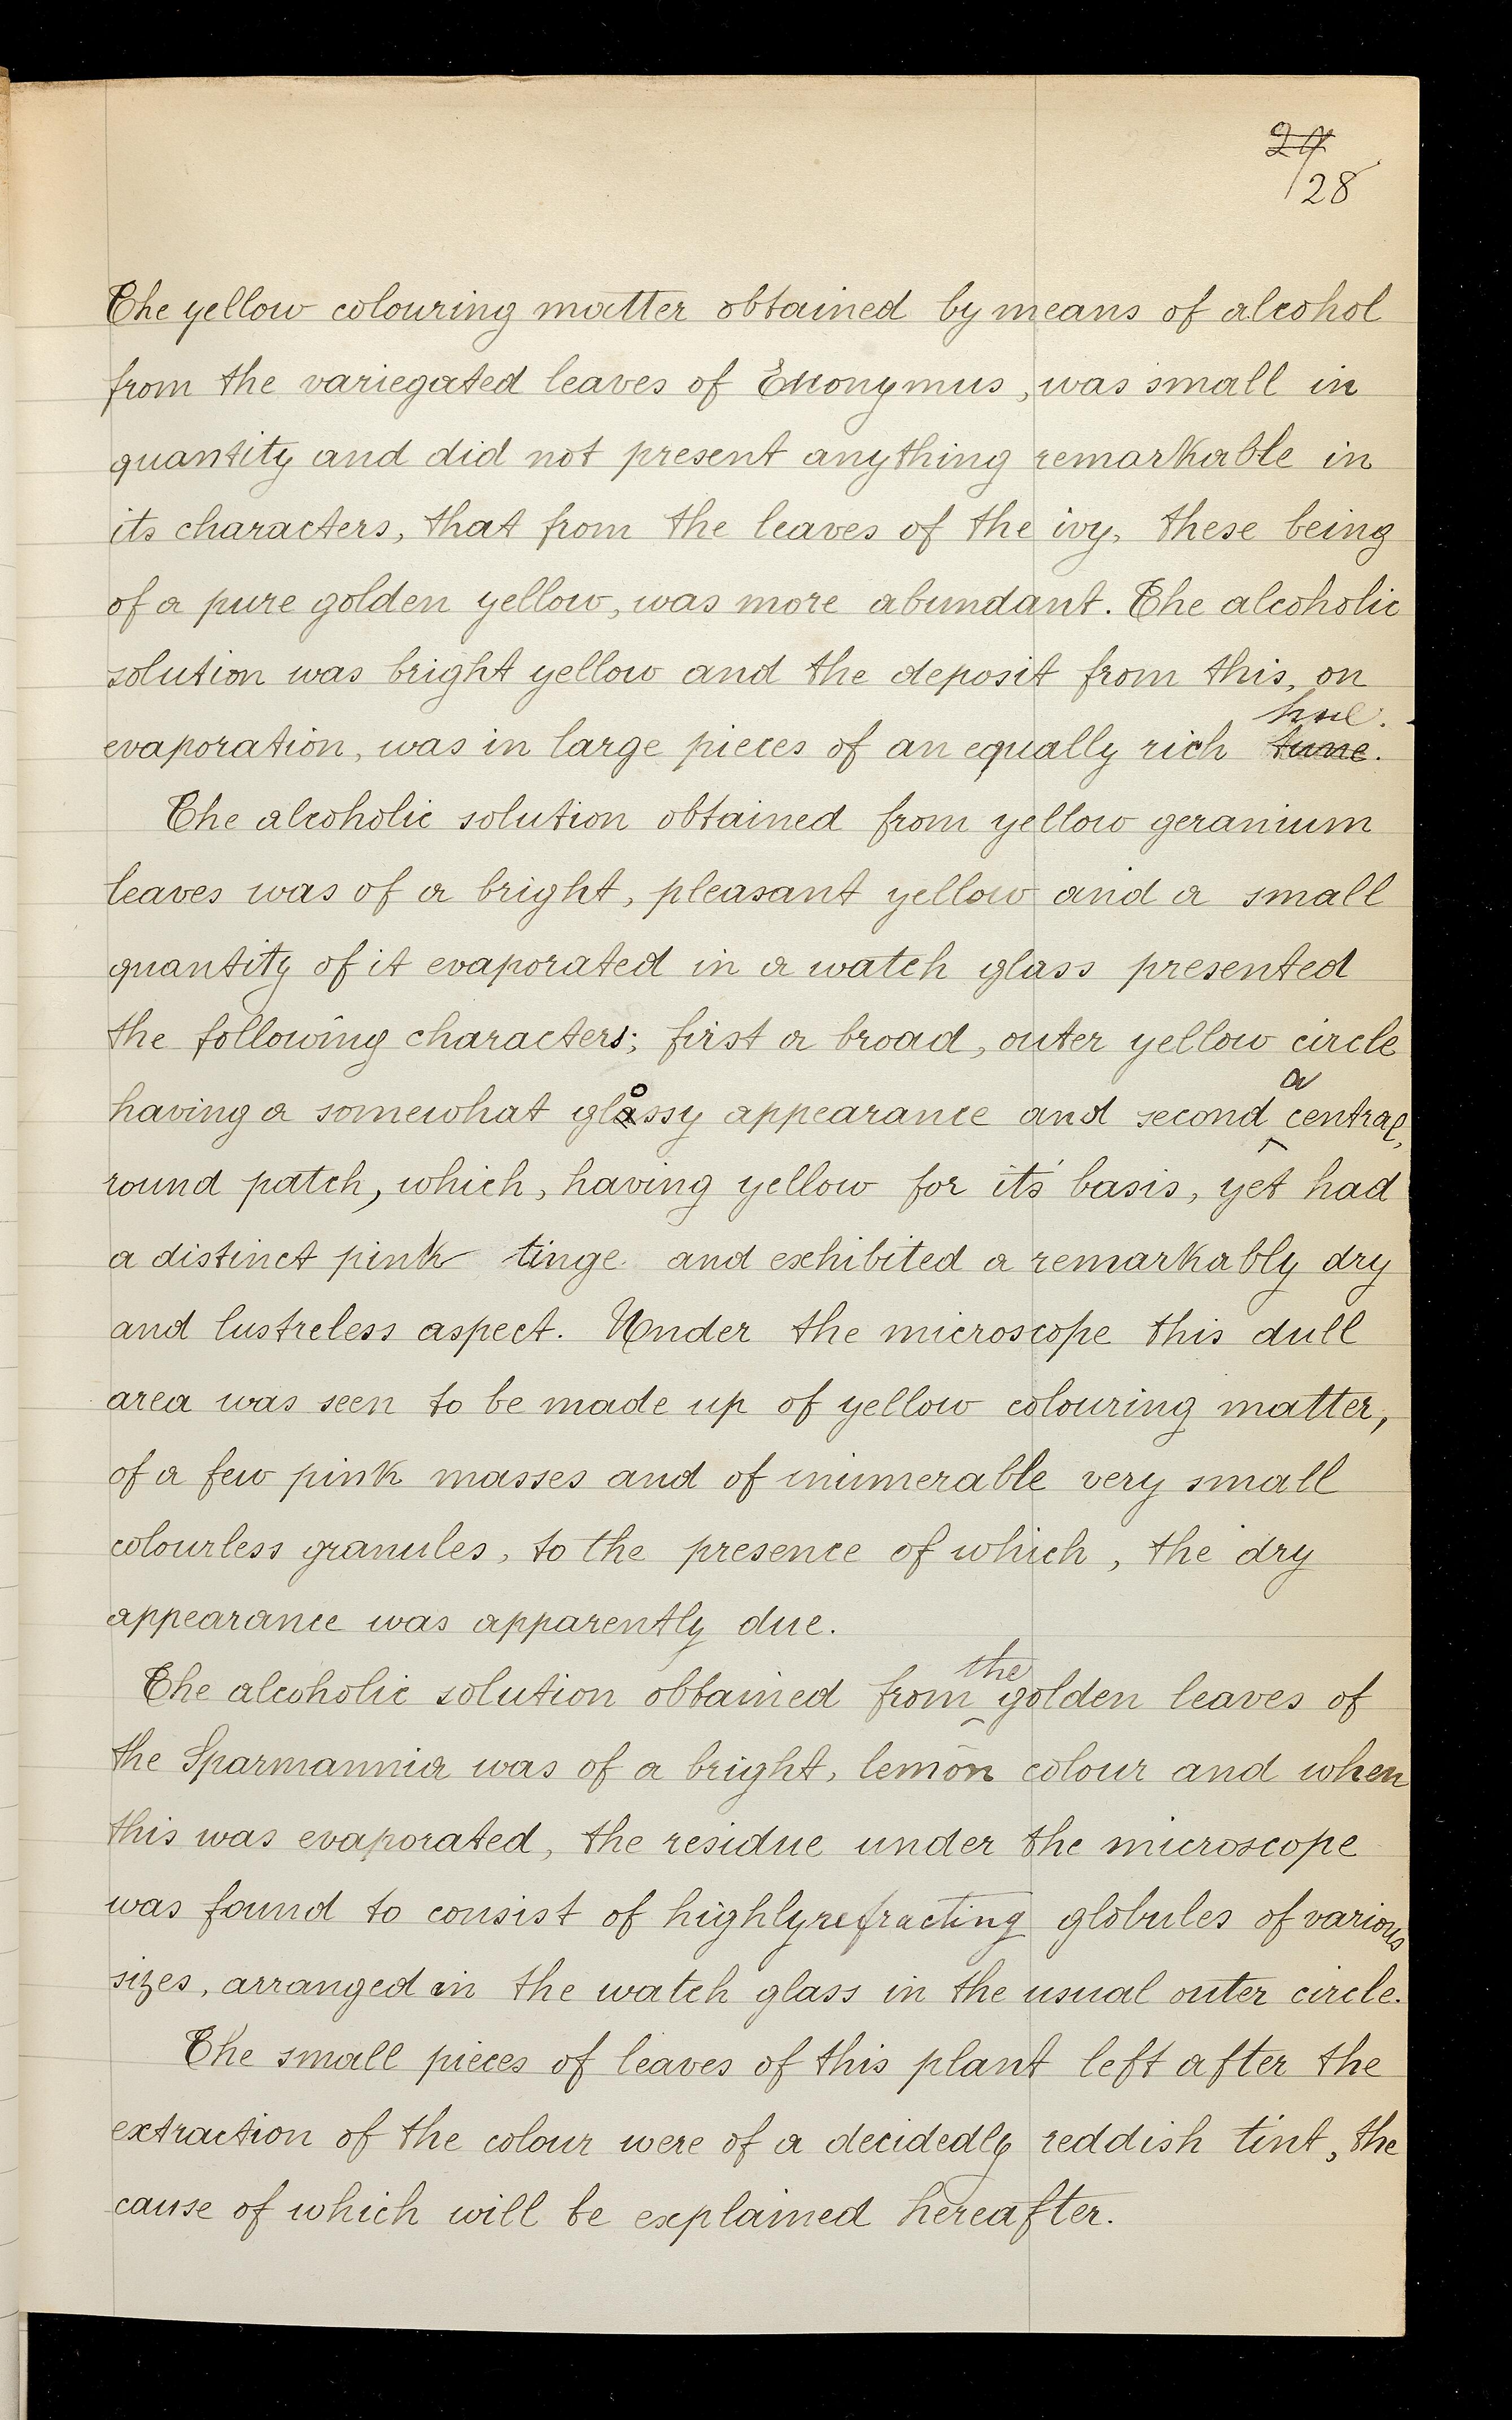 27
28
The yellow colouring matter obtained by means of alcohol
from the variegated leaves of Euonymus, was small in
quantity and did not present anything remarkable in
its characters, that from the leaves of the ivy, these being
of a pure golden yellow, was more abundant. The alcoholic
solution was bright yellow and the deposit from this, on
hue.
evaporation, was in large pieces of an equally rich tune.
The alcoholic solution obtained from yellow geranium
leaves was of a bright, pleasant yellow and a small
quantity of it evaporated in a watch glass presented
the following characters; first a broad, outer yellow circle
a
having a somewhat glossy appearance and second central,
round patch, which, having yellow for it's basis, yet had
a distinct pink tinge and exhibited a remarkably dry
and lustreless aspect. Under the microscope this dull
area was seen to be made up of yellow colouring matter,
of a few pink masses and of inumerable very small
colourless granules, to the presence of which, the dry
appearance was apparently due.
the
The alcoholic solution obtained from golden leaves of
the Sparmannia was of a bright, lemon colour and when
this was evaporated, the residue under the microscope
was found to consist of highly refracting globules of various
sizes, arranged in the watch glass in the usual outer circle.
The small pieces of leaves of this plant left after the
extraction of the colour were of a decidedly reddish tint, the
cause of which will be explained hereafter.